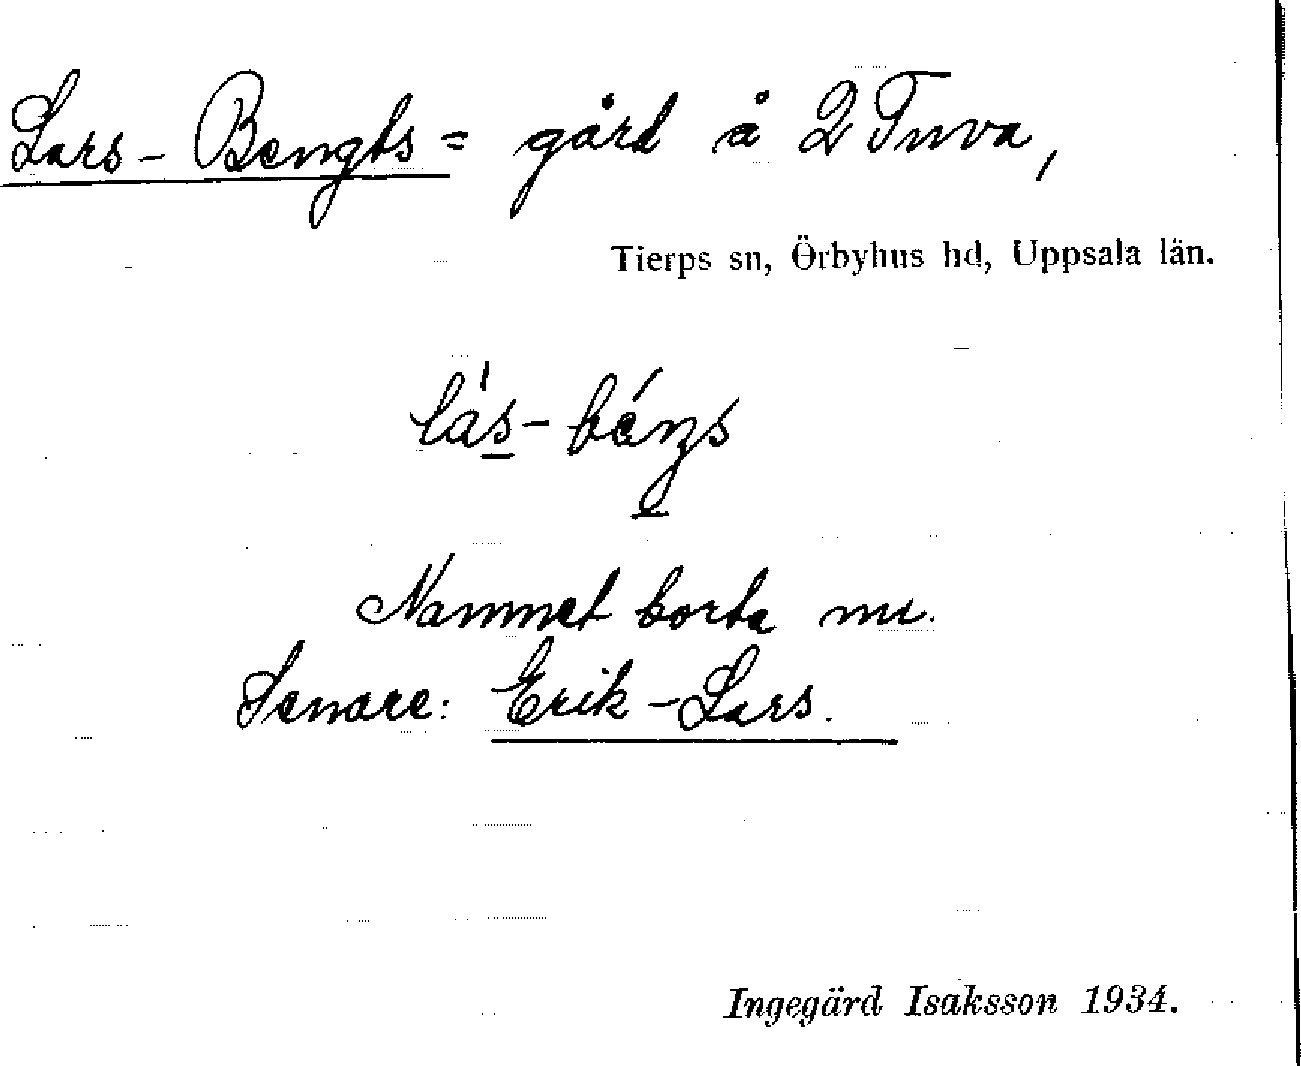 Lars-Bengts = gård å 2 Tuva,
Tierps sn, Örbyhus hd, Uppsala län.
Namnet borta nu.
Senare: Erik-Lars.
Ingegärd Isaksson 1934.